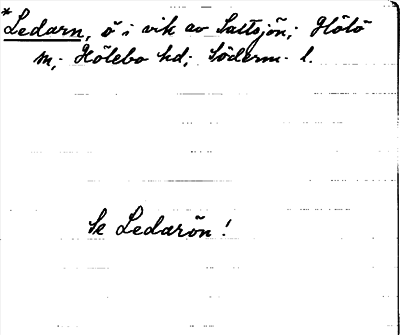 *Ledarn, ö i vik av Saltsjön; Hölö
sn; Hölebo hd; Söderm. l.
Se Ledarön!